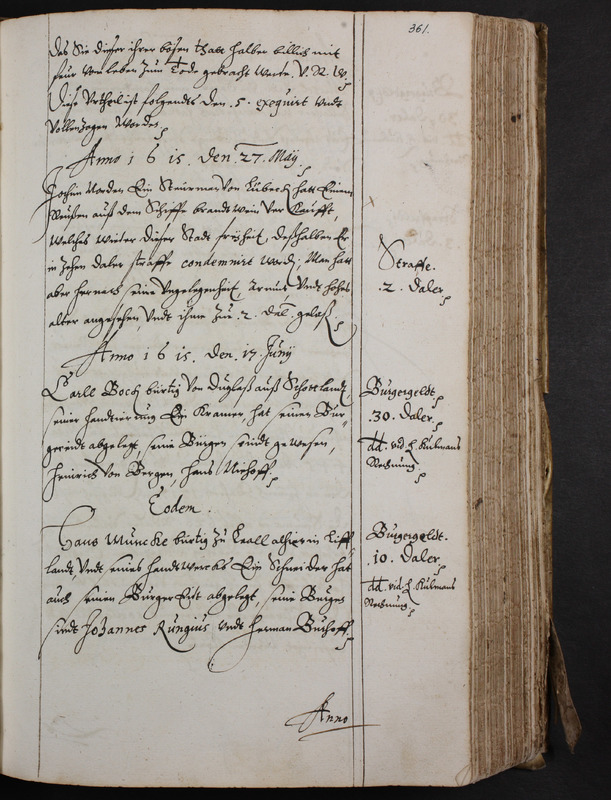 361.
das Sie dieser ihrer bösen thatt halber billich mit
feur vom leben zum Tode gebracht werde. V. R. W.
Diese Vrtheil ist folgendts den .5. exequirt vndt
Vollenzogen worden.
Anno 1615. den .27. May.
Jochim Norden Ein Steurman Von Lübeck hatt Einem
Reußen auß dem Schiffe brandtwein Ver Kaufft,
welches wieder dieser Stadt freyheit, deßhalben Er
in Zehen daler straffe condemnirt word; Man hatt
aber hernach seine Vngelegenheit, Armut Vndt hohes
alter angesehen Vndt ihme Zur .2. dal. gelaß.
Straffe.
.2. daler
Anno 1615. den .17. Junij
Carll Boch bürtig Von Duglaß auß Schottlandt,
seiner handtierung Ein Kramer, hat seinen Bür
gereidt abgelegt, seine Bürgen sindt gewesen,
Heinrich Von Bergen, Hans Niehoff.
Bürgergeldt.
.30. daler.
dd. vid. H. Kulmans
Rechnung.
Eodem.
Hans Muncke bürtig zu Leall alhier in Liff
landt, Vndt seines handtwercks Ein Schneider hat
auch seinen BürgerEidt abgelegt, seine Bürgen
sindt Johannes Rungius vndt Herman Buchoff.
Bürgergeldt.
.10. daler
dd. vid. H. Kulmans
Rechnung.
Anno